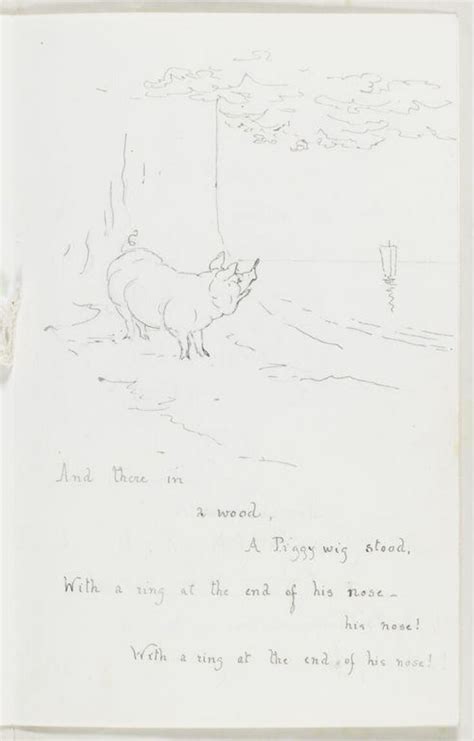 And there in
a wood,
A Piggy wig stood,
With a ring at the end of his nose –
his nose!
With a ring at the end of his nose!